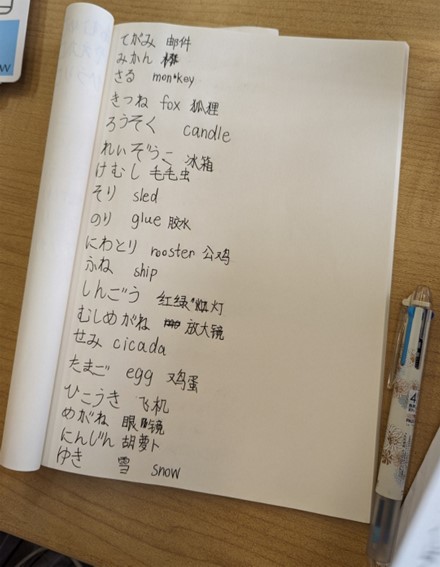 てがみ 邮件
みかん
さる monkey
きつね fox 狐狸
ろうそく candle
れいぞうこ 冰箱
けむし 毛毛虫
そり sled
のり glue 胶水
にわとり rooster 公鸡
ふね ship
しんごう 红绿灯
むしめがね 放大镜
せみ cicada
たまご egg 鸡蛋
ひこうき 飞机
めがね 眼镜
にんじん 胡萝卜
ゆき 雪 snow